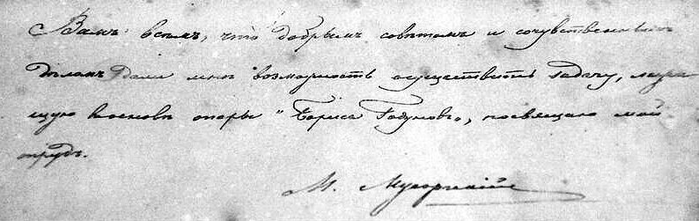 Вамъ всѣмъ, что добрымъ совѣтомъ и сочувственнымъ
дѣломъ дали мнѣ возможность осуществить задачу, лежа-
щую въ основѣ оперы "Борисъ Годуновъ", посвящаю мой
трудъ.
М. Мусоргскій